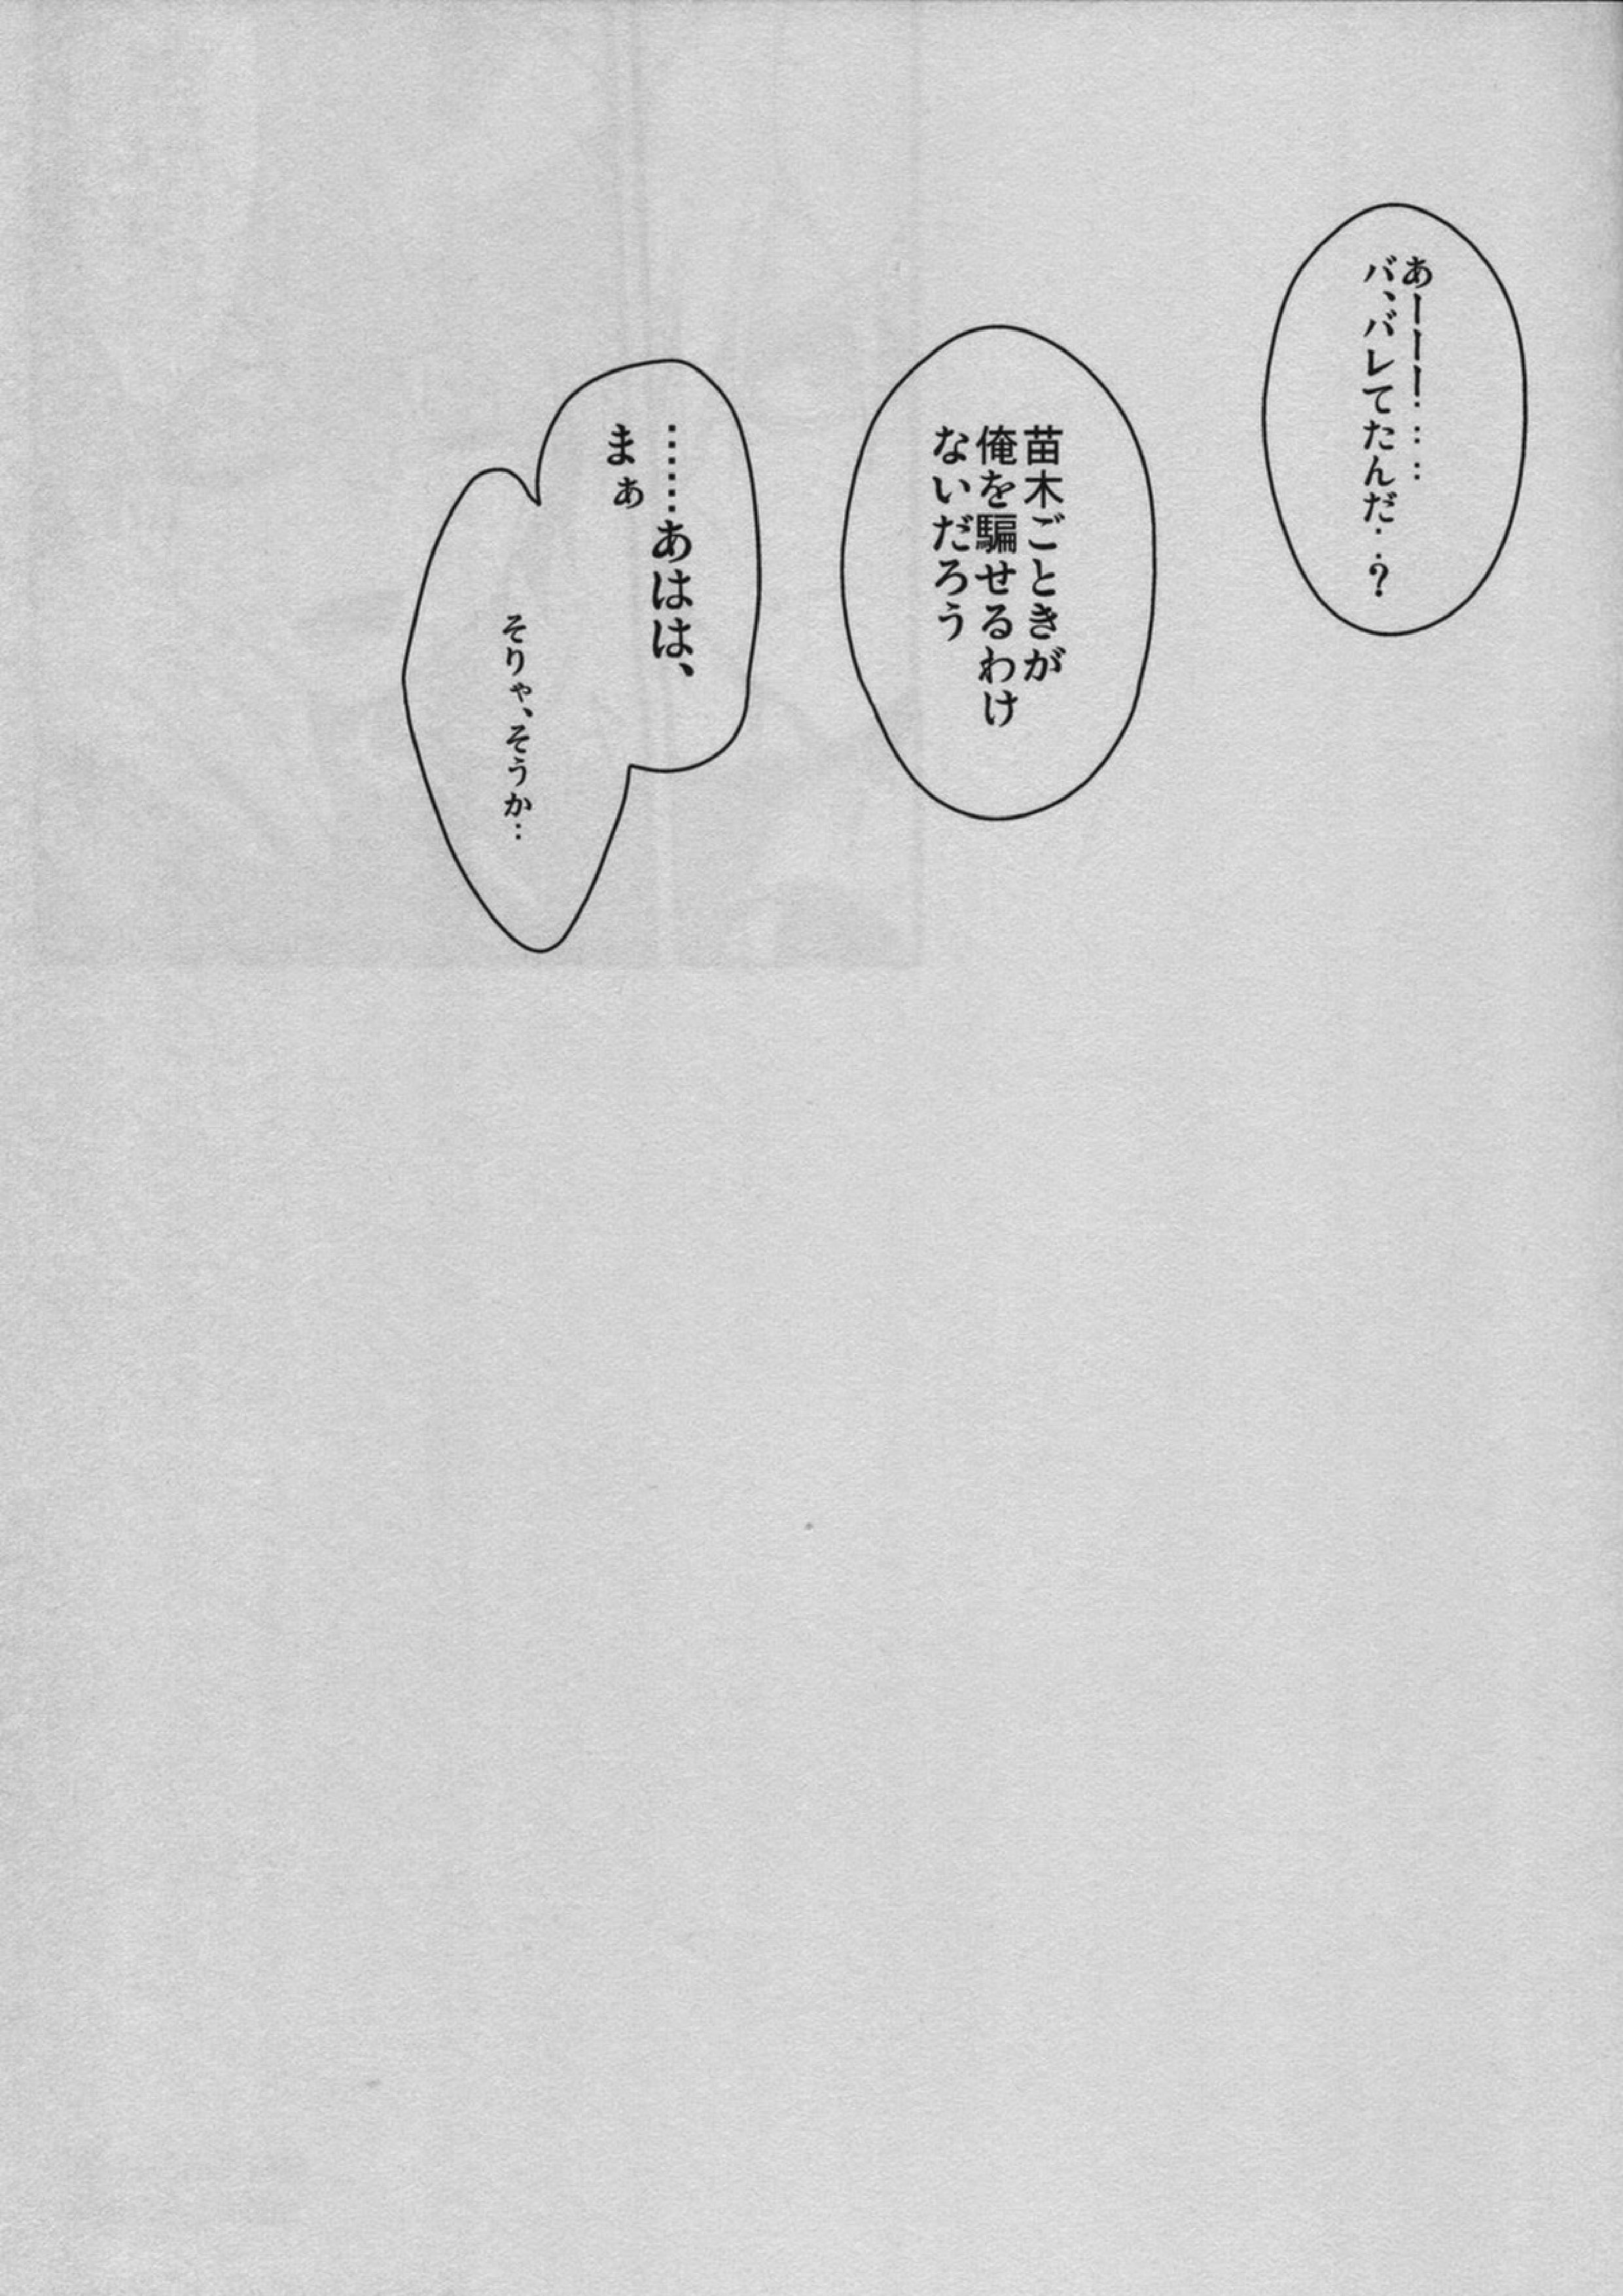 あーーー‥‥‥
バ、バレてたんだ‥?
苗木ごときが
俺を騙せるわけ
ないだろう
……あはは、
まぁ
そりゃ、そうか…